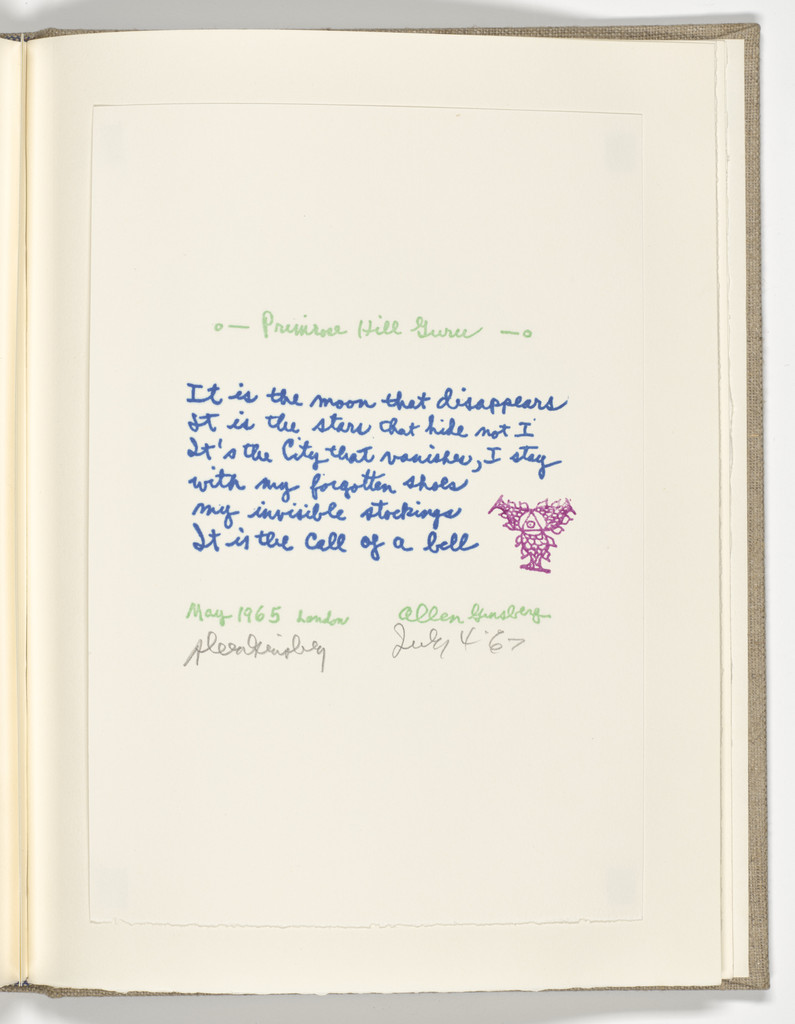 o— Primrose Hill Guru —o
It is the moon that disappears
It is the stars that hide not I
It's the City that vanishes, I stay
with my forgotten shoes
my invisible stockings
It is the call of a bell
May 1965 London Allen Ginsberg
Allen Ginsberg July 4 '67